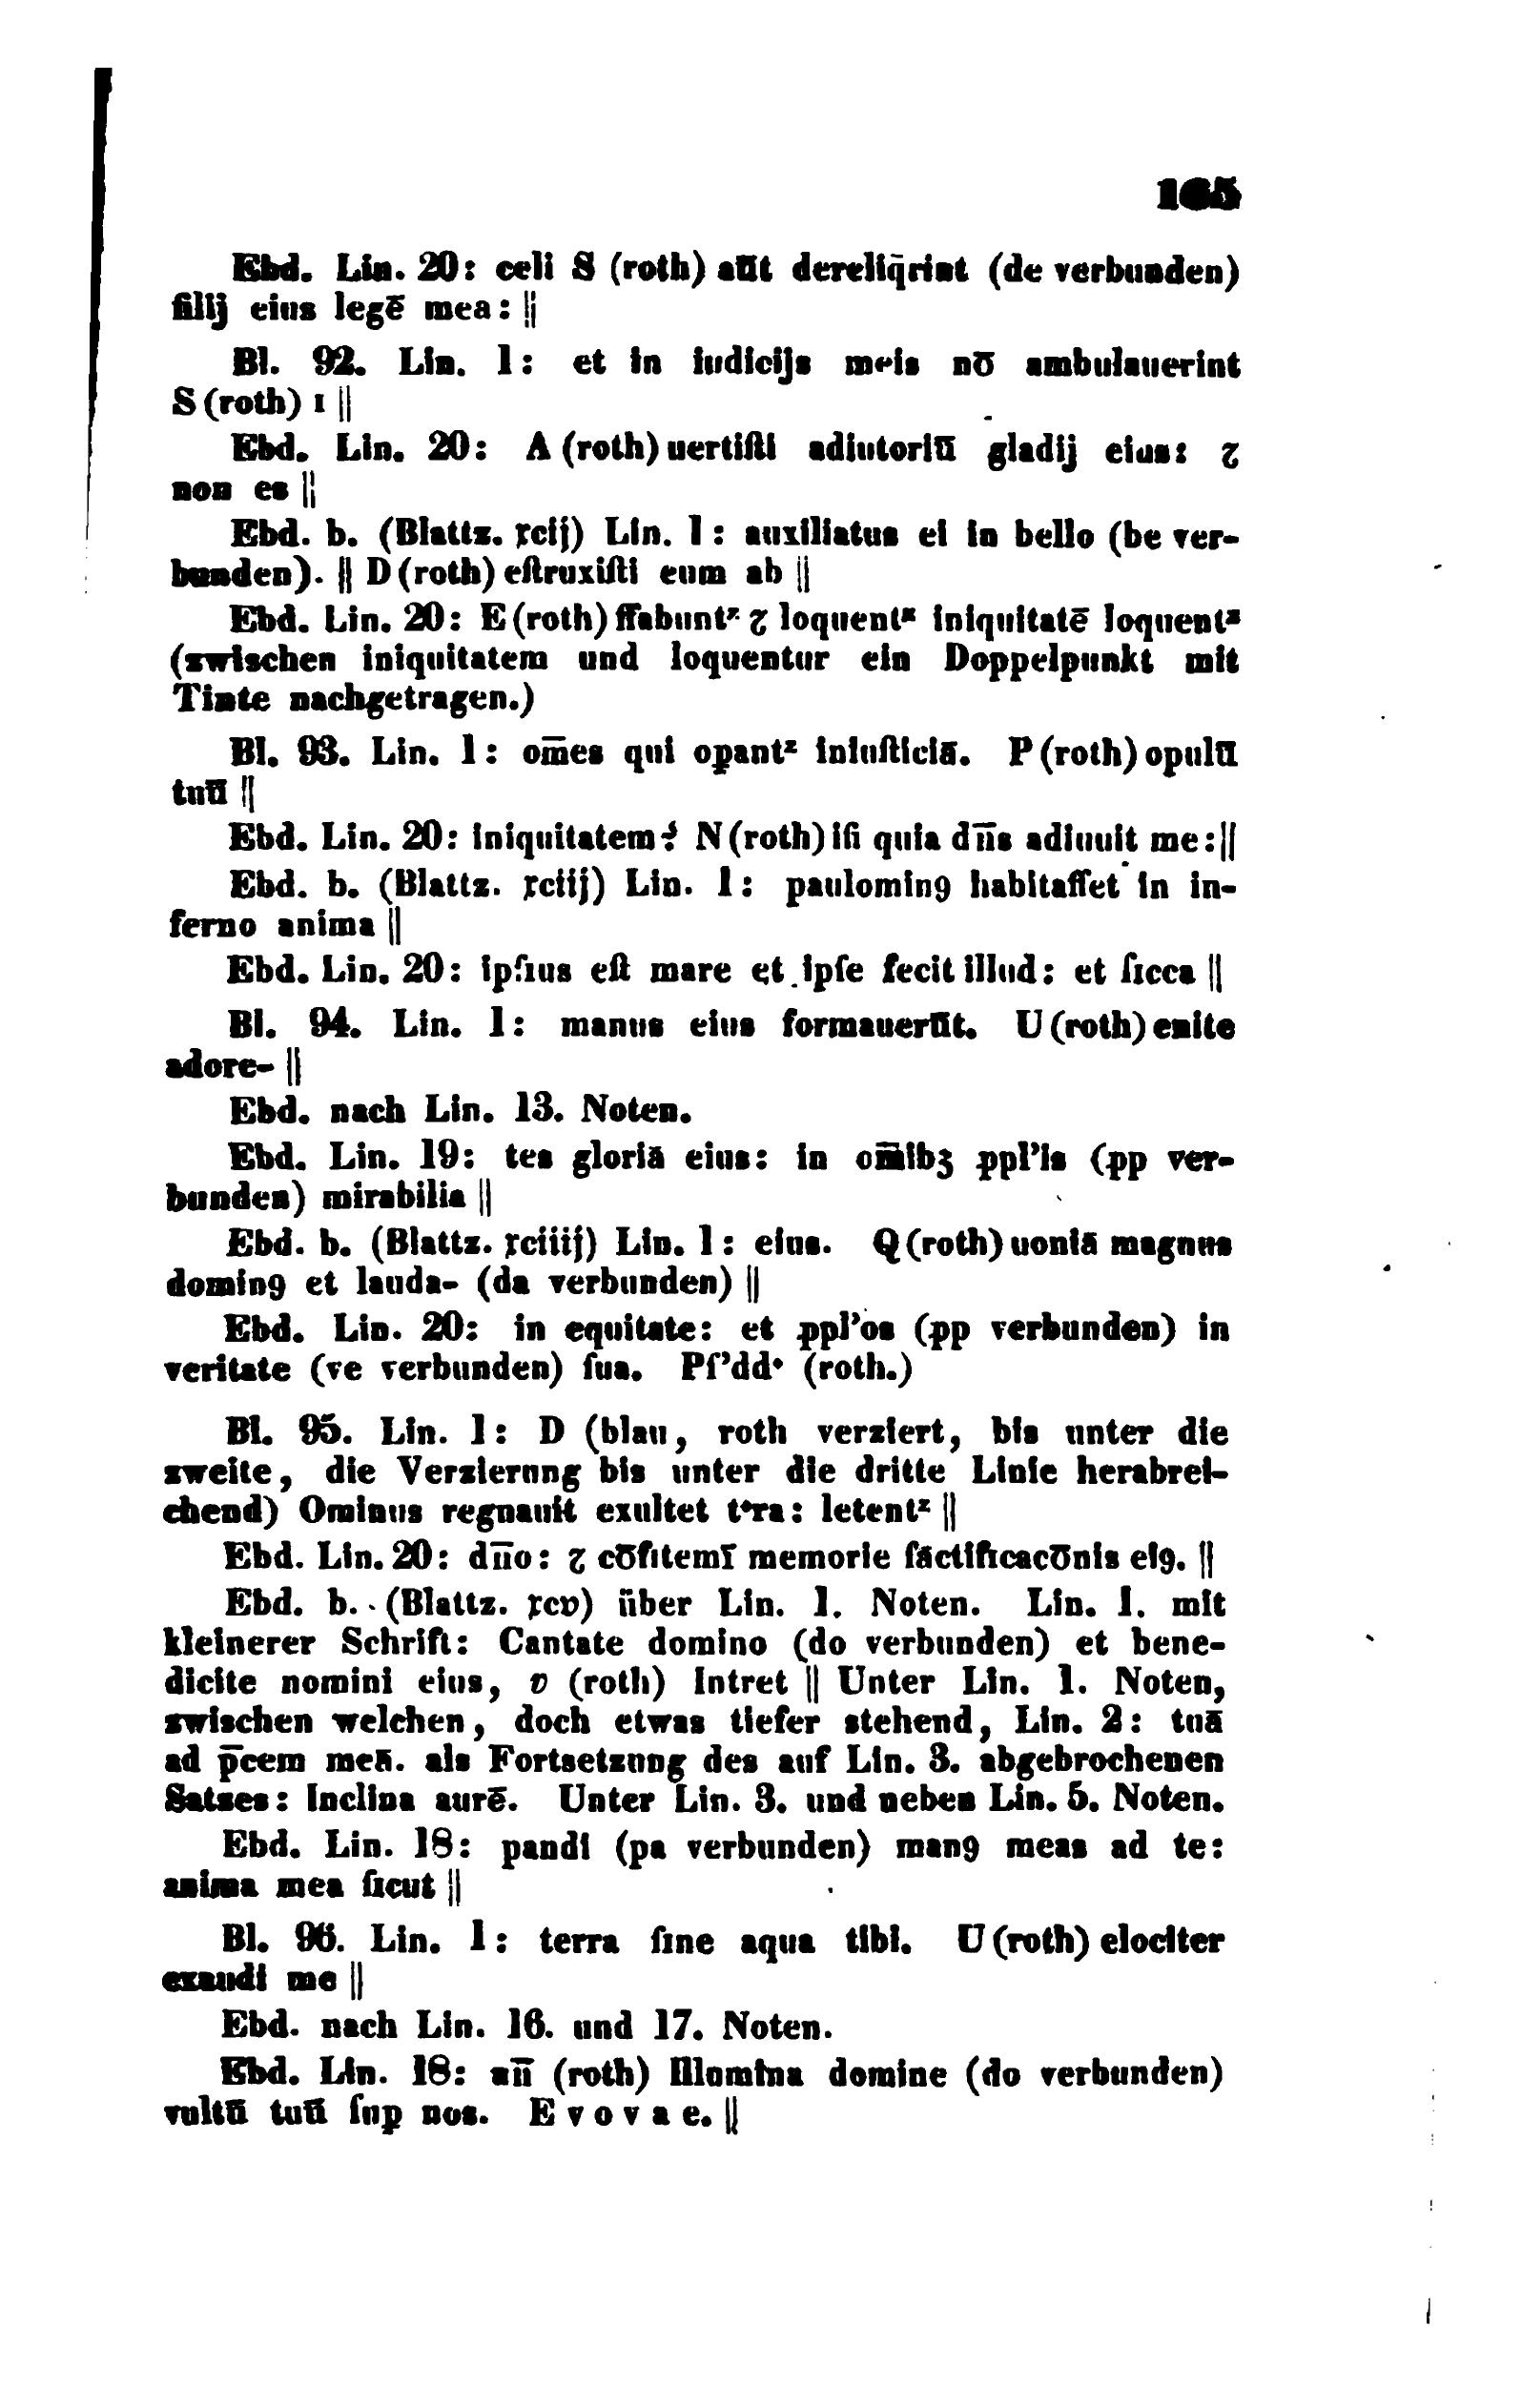 165
Ebd. Lin. 20: celi S (roth) aūt dereliq̄rint (de verbunden)
filij eius legē mea: ||
Bl. 92. Lin. 1: et in iudicijs meis nō ambulauerint
S (roth) ı ||
Ebd. Lin. 20: A (roth) uertiſti adiutoriū gladij eius: ⁊
non es ||
Ebd. b. (Blattz. ꝛcij) Lin. 1: auxiliatus ei in bello (be ver-
bunden). || D (roth) eſtruxiſti eum ab ||
Ebd. Lin. 20: E (roth) ffabuntᶻ ⁊ loquentᶻ iniquitatē loquentᶻ
(zwischen iniquitatem und loquentur ein Doppelpunkt mit
Tinte nachgetragen.)
Bl. 93. Lin. 1: om̄es qui oꝑantᶻ iniuſticiā. P (roth) opulū
tuū ||
Ebd. Lin. 20: iniquitatem: N (roth) iſi quia dn̄s adiuuit me: ||
Ebd. b. (Blattz. ꝛciij) Lin. 1: paulominꝯ habitaſſet in in-
ferno anima ||
Ebd. Lin. 20: ipſius eſt mare et ipſe fecit illud: et ſicca ||
Bl. 94. Lin. 1: manus eius formauerūt. U (roth) enite
adore- ||
Ebd. nach Lin. 13. Noten.
Ebd. Lin. 19: tes gloriā eius: in om̄ibꝫ ppl’is (pp ver-
bunden) mirabilia ||
Ebd. b. (Blattz. ꝛciiij) Lin. 1: eius. Q (roth) uoniā magnus
dominꝯ et lauda- (da verbunden) ||
Ebd. Lin. 20: in equitate: et ppl’os (pp verbunden) in
veritate (ve verbunden) ſua. Pſ’dd• (roth.)
Bl. 95. Lin. 1: D (blau, roth verziert, bis unter die
zweite, die Verzierung bis unter die dritte Linie herabrei-
chend) Ominus regnauit exultet t•ra: letentᶻ ||
Ebd. Lin. 20: dn̄o: ⁊ cōfitemī memorie ſāctificacōnis eiꝯ. ||
Ebd. b. (Blattz. ꝛcv) über Lin. 1. Noten. Lin. 1. mit
kleinerer Schrift: Cantate domino (do verbunden) et bene-
dicite nomini eius, v (roth) Intret || Unter Lin. 1. Noten,
zwischen welchen, doch etwas tiefer stehend, Lin. 2: tuā
ad p̄cem meā. als Fortsetzung des auf Lin. 3. abgebrochenen
Satzes: Inclina aurē. Unter Lin. 3. und neben Lin. 5. Noten.
Ebd. Lin. 18: pandi (pa verbunden) manꝯ meas ad te:
anima mea ſicut ||
Bl. 96. Lin. 1: terra ſine aqua tibi. U (roth) elociter
exaudi me ||
Ebd. nach Lin. 16. und 17. Noten.
Ebd. Lin. 18: an̄ (roth) Illumina domine (do verbunden)
vultū tuū ſuꝑ nos. E v o v a e. ||